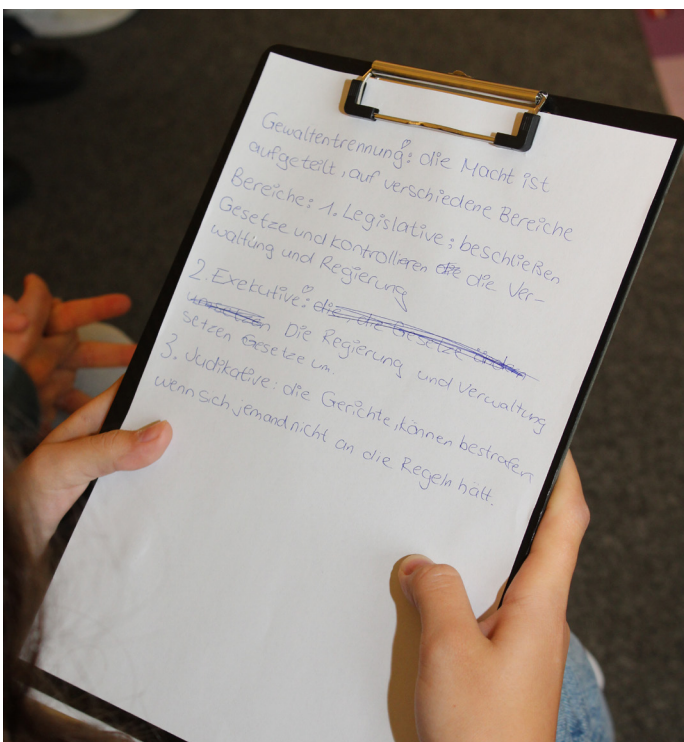 Gewaltentrennung: die Macht ist
aufgeteilt, auf verschiedene Bereiche
Bereiche: 1. Legislative: beschließen
Gesetze und kontrollieren die die Ver-
waltung und Regierung
2. Exekutive: die, die Gesetze ändern
umsetzen Die Regierung und Verwaltung
setzen Gesetze um.
3. Judikative: die Gerichte, können bestrafen
wenn sich jemand nicht an die Regeln hält.